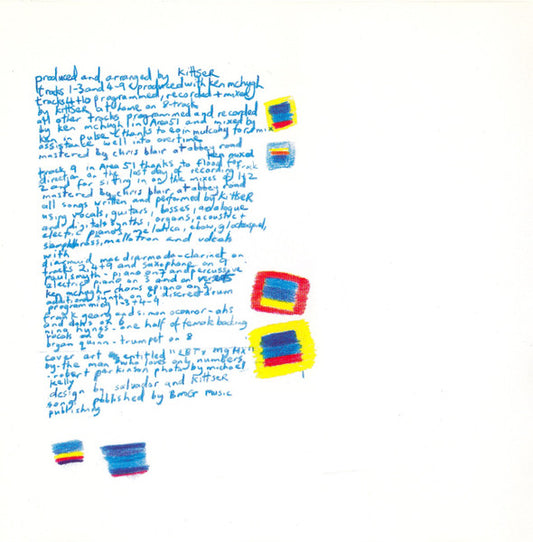 produced and arranged by KittSeR
tracks 1-3 and 4-9 coproduced with ken mchugh
tracks 4+10 programmed, recorded + mixed
by KittSeR at home on 8-track
all other tracks programmed and recorded
by ken mchugh in Area51 and mixed by
ken in pulse (thanks to eoin mulcahy for d mix
assistance well into overtime
mastered by chris blair at abbey road
ken mixed
track 9 in Area 51 thanks to flood for
direction on the last day of recording track
2 and for sitting in on the mixes of 1+2
mastered by chris blair at abbey road
all songs written and performed by KittSeR
using vocals, guitars, basses, analogue
and digital synths, organs, acoustic +
electric pianos, melodica, ebow, glockenspiel,
brass, mellotron and
with
diarmuid macdiarmada - clarinet on
tracks 2, 4+9 and saxophone on 9
paul smyth - piano on 7 and percussive
electric piano on 5 and on
ken mchugh - rhodes piano on 5
additional synth on 6, discreet drum
programming on 4-9
frank geary and simon oconnor - ahs
and dohs on 6
nina hynes - one half of female backing
vocals on 6
bryan quinn - trumpet on 8
cover art entitled
by the man who loves only numbers
- robert parkinson photo by michael
kelly
design by salvador and KittSeR
songs published by BMG music
publishing